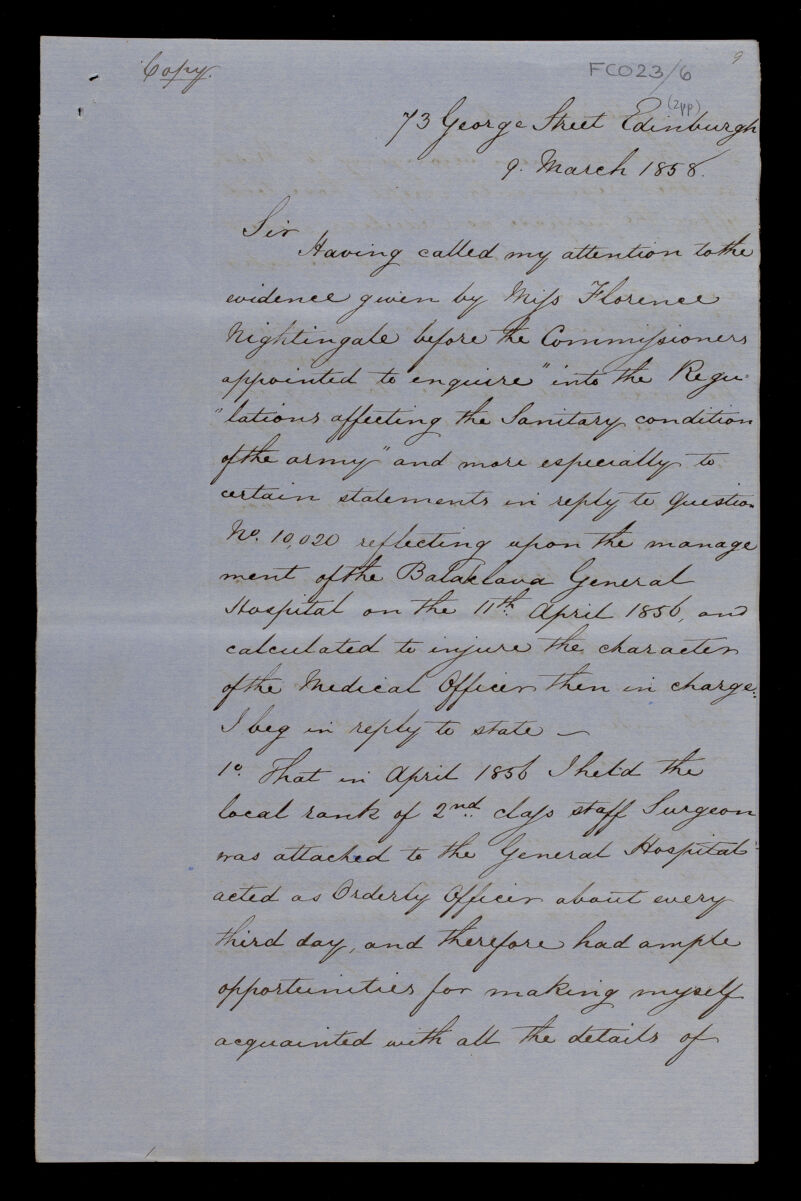 9
Copy.
FCO23/6
(2pp)
73 George Street Edinburgh
9. March 1858.
Sir
Having called my attention to the
evidence given by Miss Florence
Nightingale before the Commissioners
appointed to enquire "into the Regu-
"lations affecting the Sanitary condition
of the army" and more especially to
certain statements in reply to Question
No. 10,020 reflecting upon the manage
ment of the Balaclava General
Hospital on the 11th April 1856, and
calculated to injure the character
of the Medical Officer then in charge.
I beg in reply to state –
1o. That in April 1856 I held the
local rank of 2nd. class staff Surgeon
was attached to the General Hospital
acted as Orderly Officer about every
third day, and therefore had ample
opportunities for making myself
acquainted with all the details of